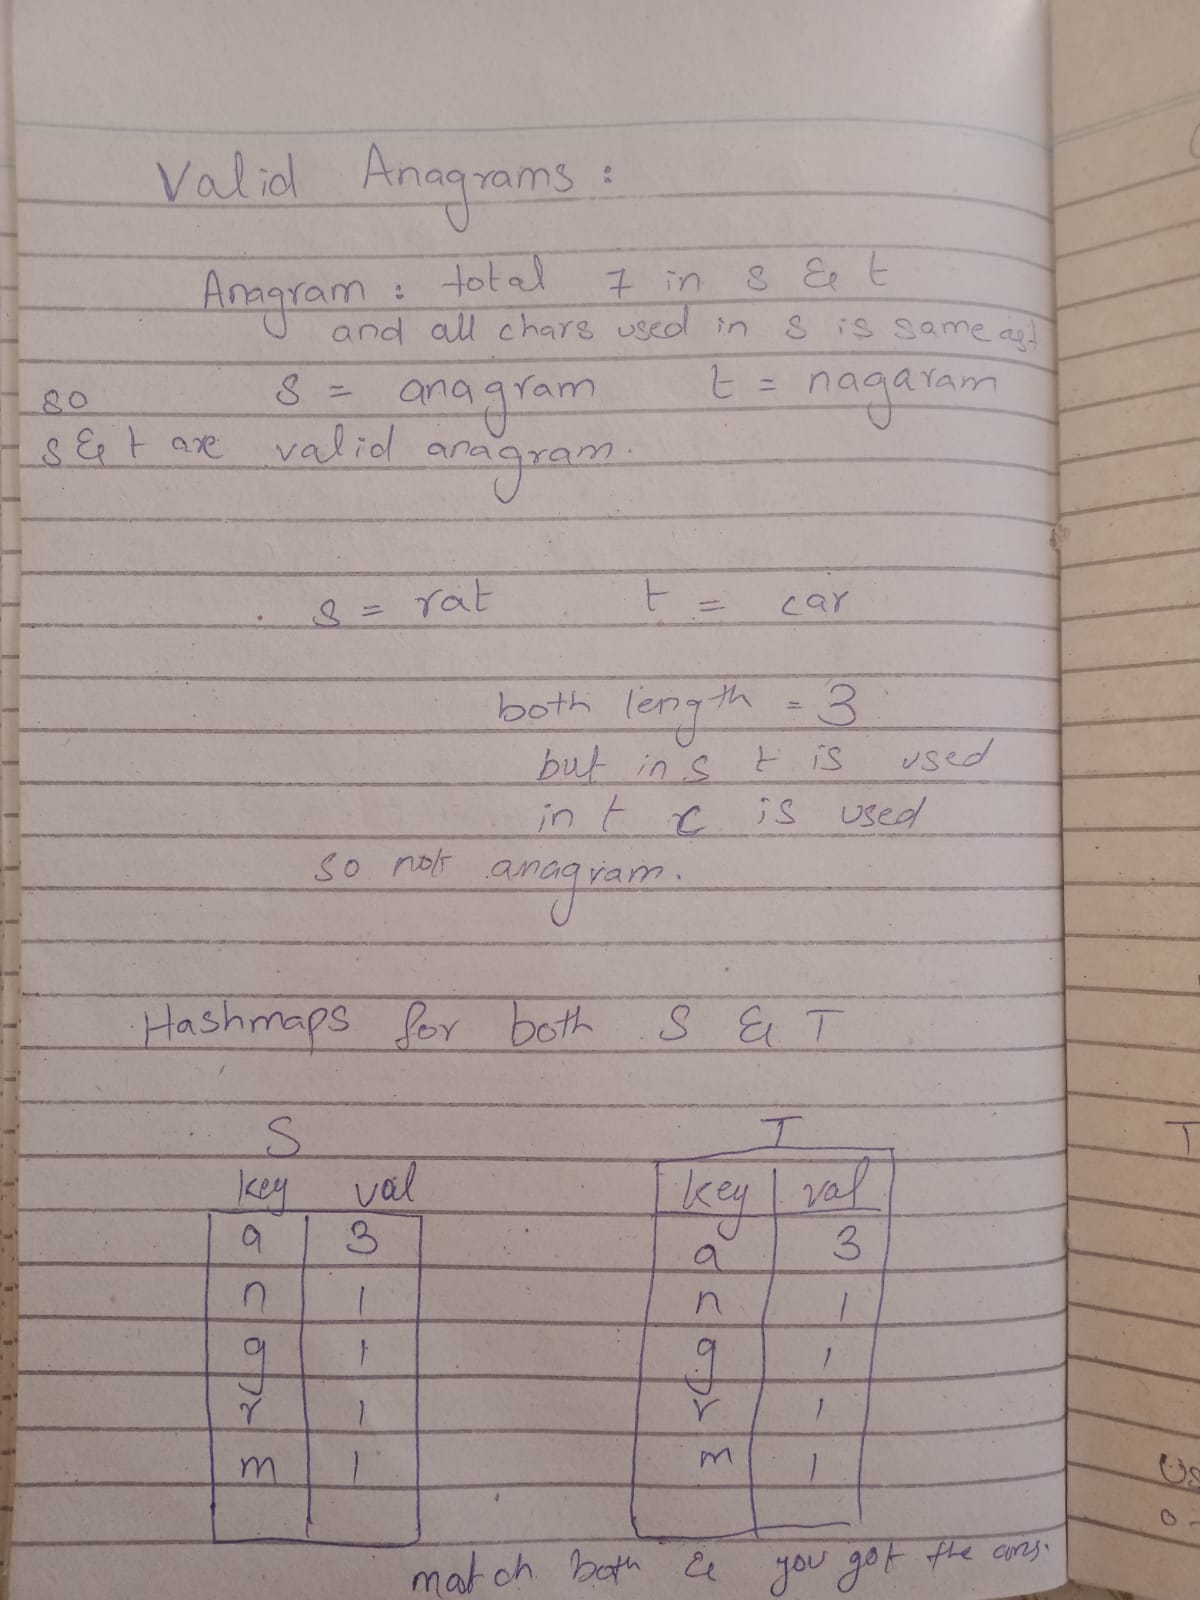 Valid Anagrams :
Anagram : total 7 in s & t
and all chars used in s is same as t
s = anagram t = nagaram
so
s & t are valid anagram.
s = rat t = car
both length = 3
but in s t is used
in t c is used
so not anagram.
Hashmaps for both S & T
S T
key val key val
a 3 a 3
n 1 n 1
g 1 g 1
r 1 r 1
m 1 m 1
match both & you got the ans.